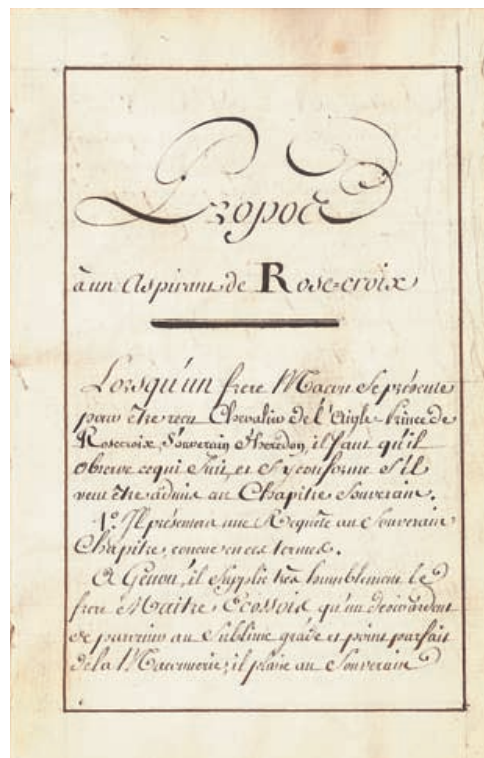 Propos
à un Aspirant de Rose-croix
Lorsqu'un frere Maçon se présente
pour être recu Chevalier de l'Aigle Prince de
Rosecroix, Souverain d'heredon, il faut qu'il
observe ce qui suit, et s'y conforme s'il
veut être admis au Chapitre Souverain.
1º. Il présentera une Requête au Souverain
Chapitre, concue en ces termes.
A Genou, il supplie très humblement le
frere Maitre Ecossois qu'un desir ardent
de parvenir au Sublime grade et point parfait
de la Maconnerie; il plaise au Souverain